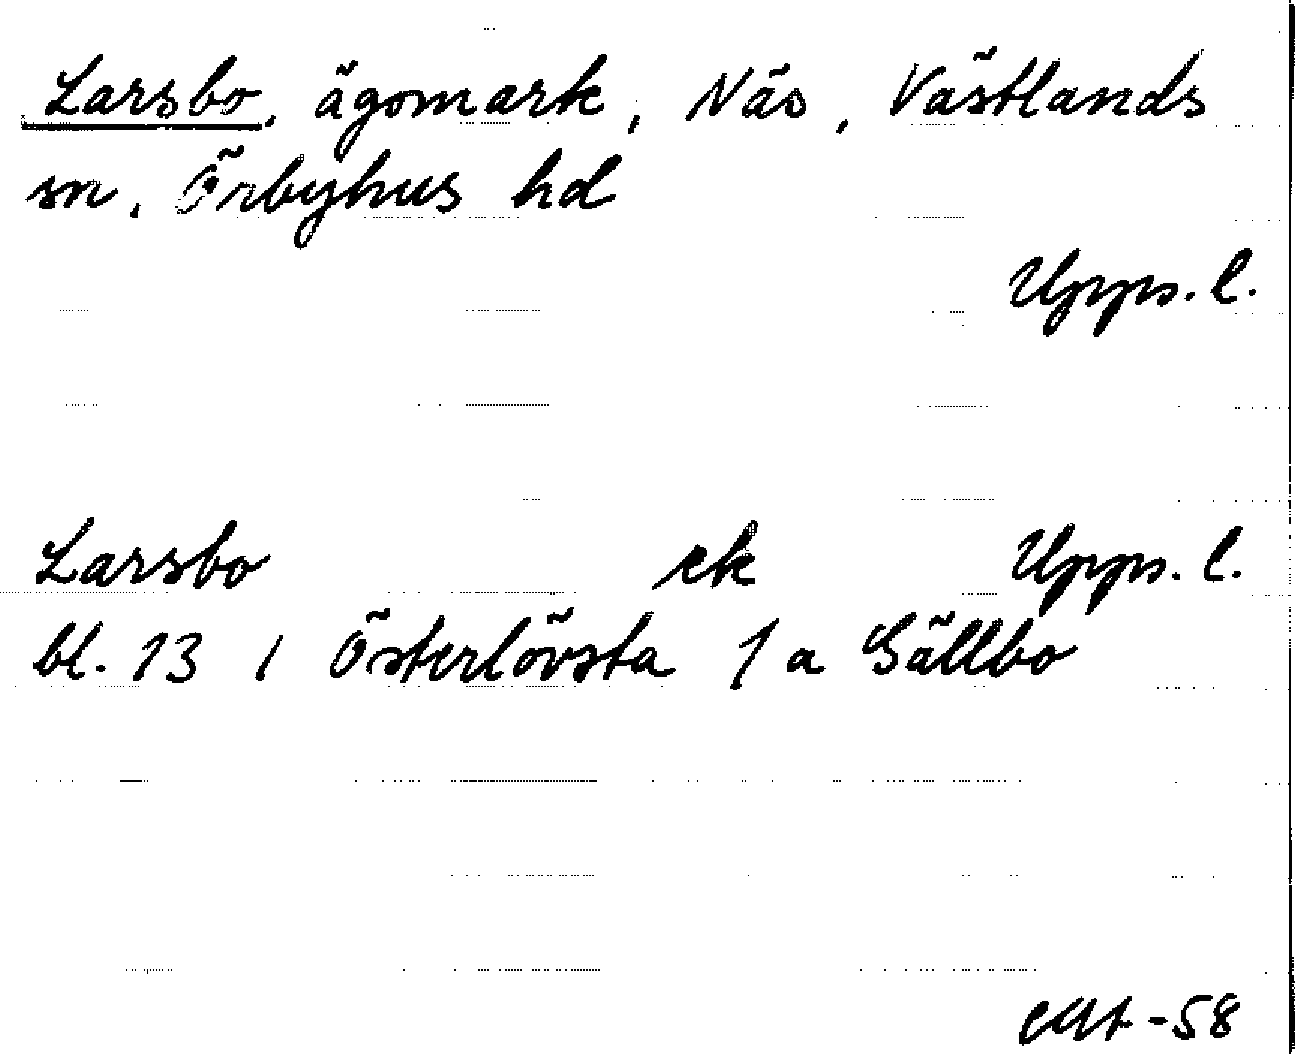 Larsbo, ägomark, Näs, Västlands
sn, Örbyhus hd
Upps. l.
Larsbo ek Upps. l.
bl. 13 i Österlövsta 1 a Sällbo
-58